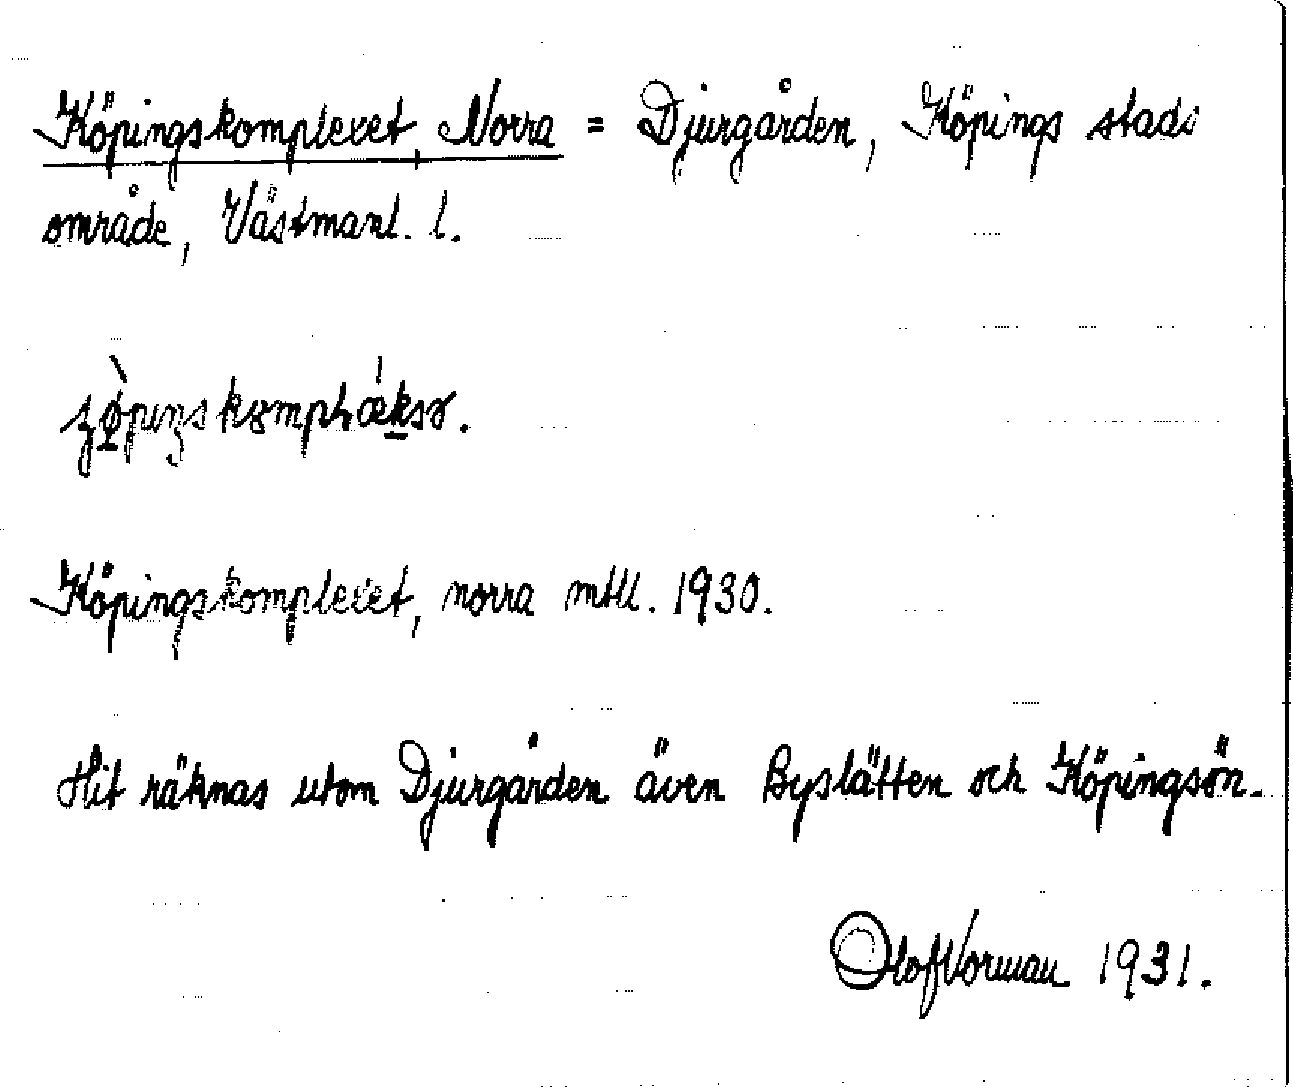 Köpingskomplexet, Norra = Djurgården, Köpings stads
område, Västmanl. l.
Köpingskomplexet, norra mtll. 1930.
Hit räknas utom Djurgården även Byslätten och Köpingsön.
Olof Vorman 1931.